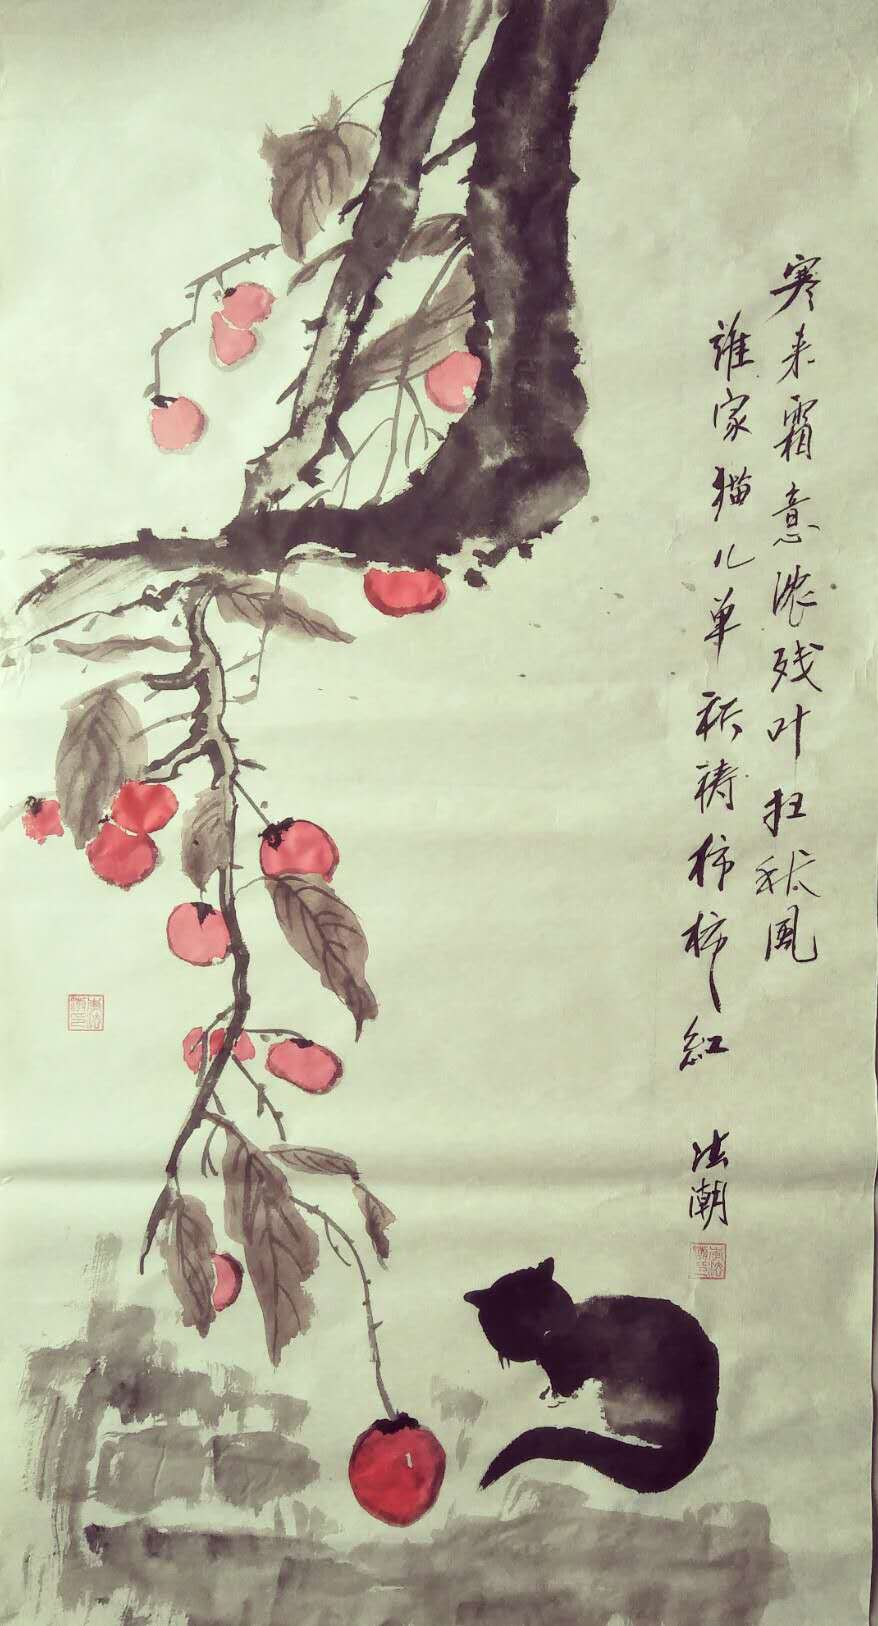 寒来霜意浓残叶扫秋風
誰家猫儿单祈祷柿柿紅
法潮